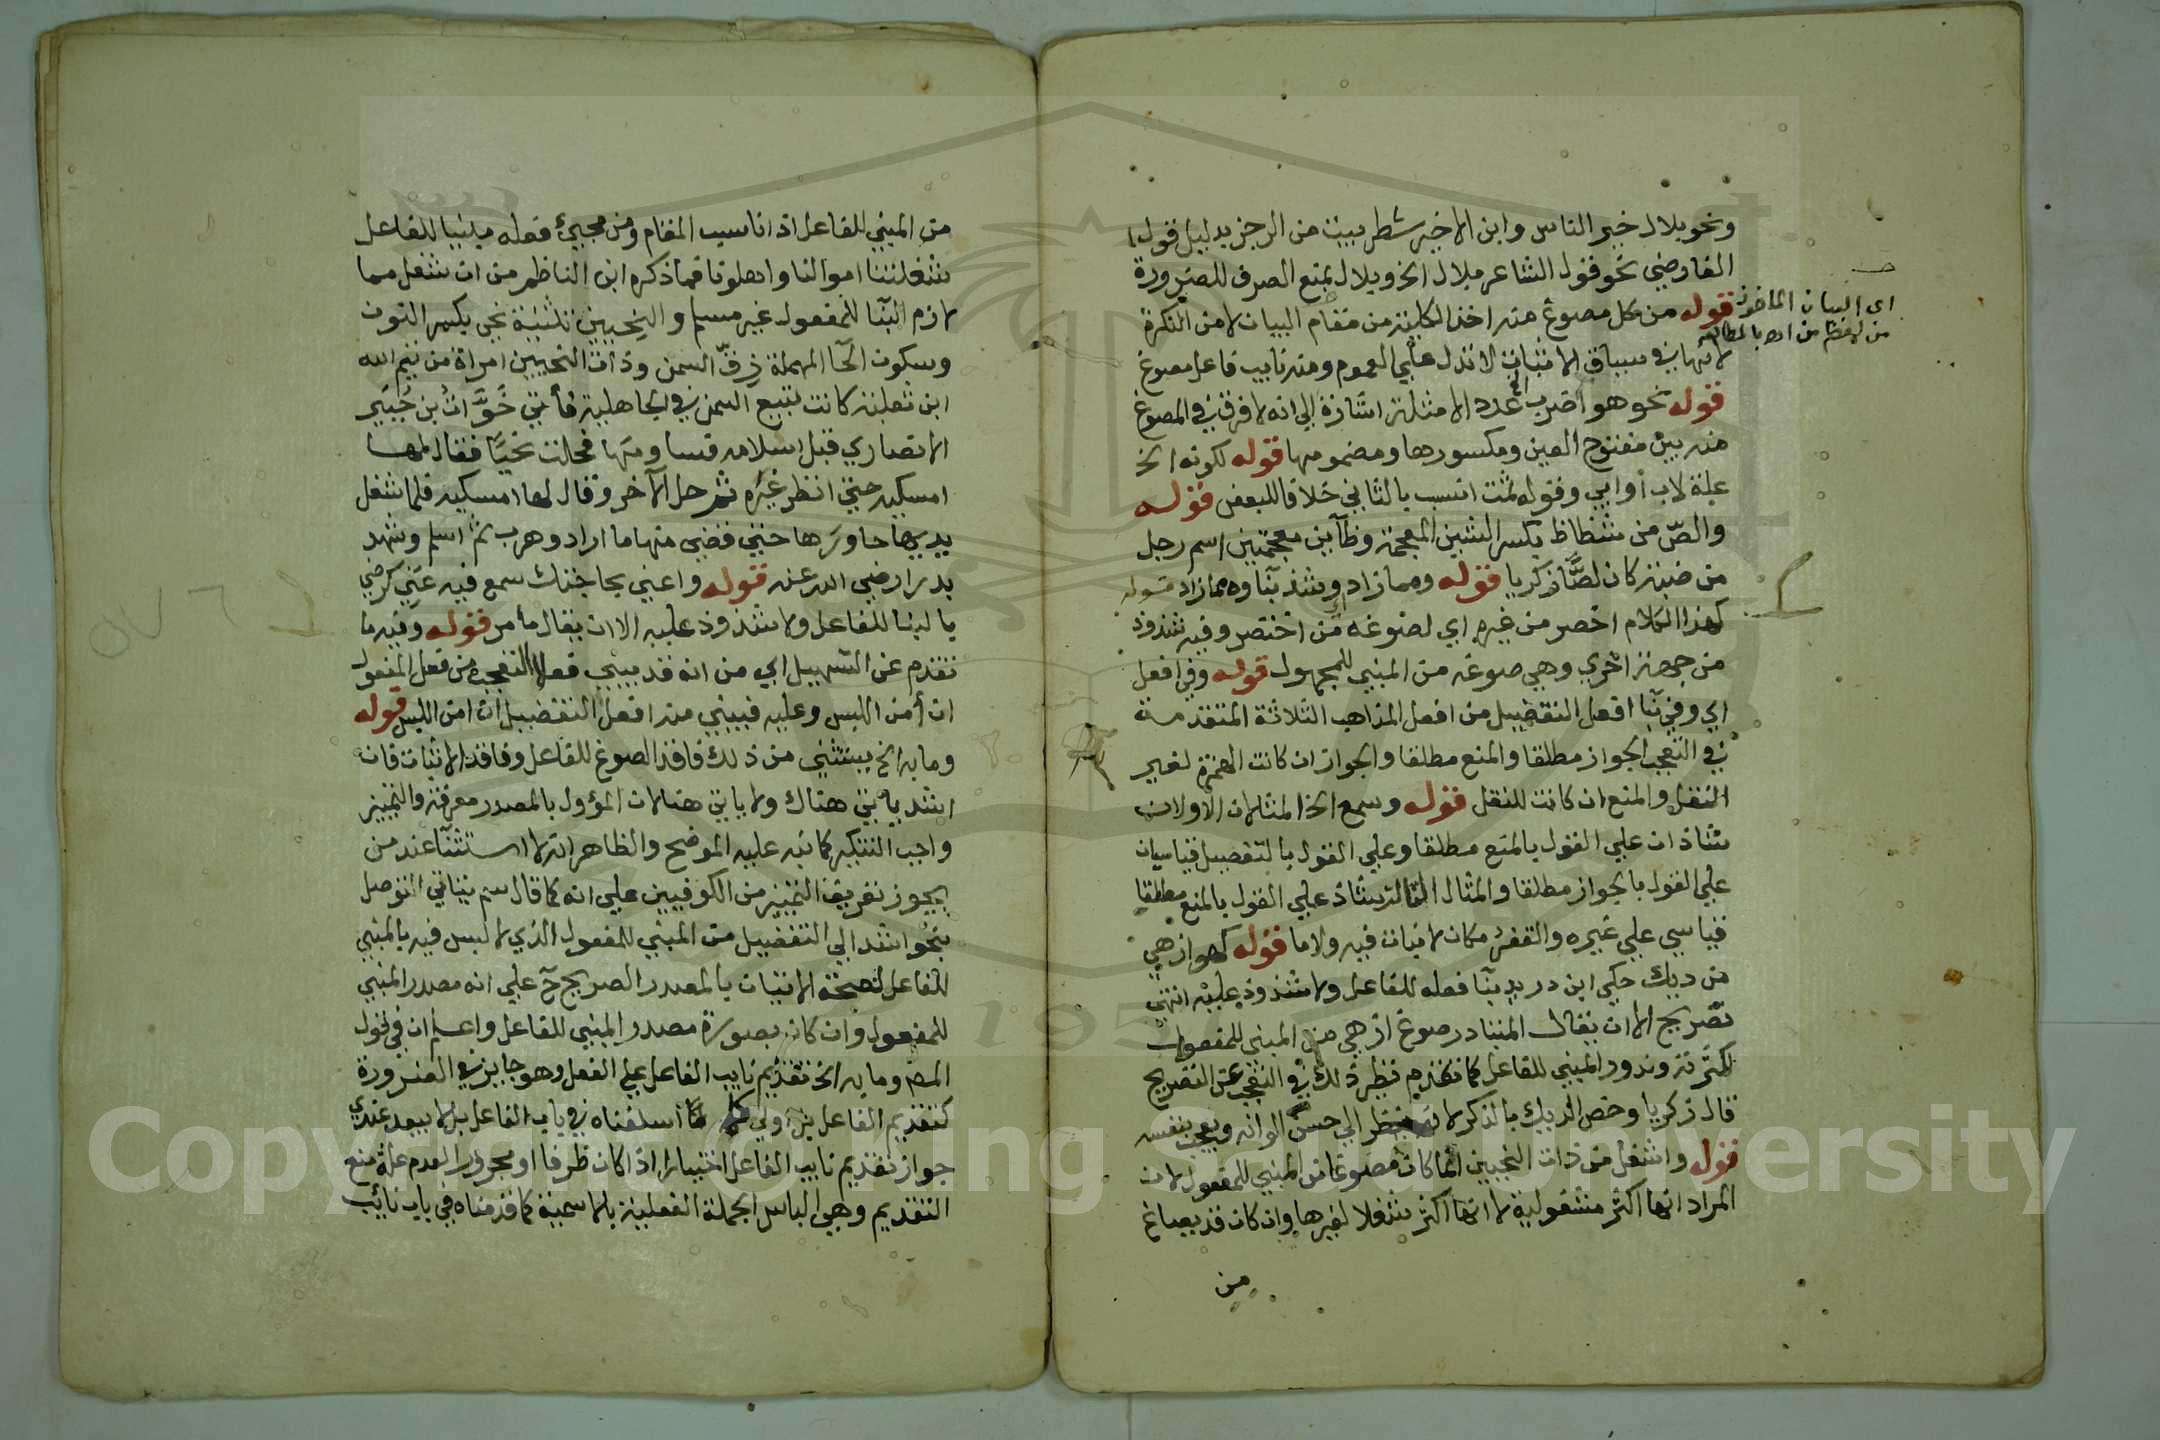 ونحو بلال خير الناس وابن الاخير شطر بيت من الرجز بدليل قول
الفارضي نحو قول الشاعر بلال الخ وبلال بمنع الصرف للضرورة
قوله من كل مصوغ منه اخذ الكلية من مقام البيان لا من النكرة
لانها في سياق الاثبات لا تدل علي العموم ومنه نايب فاعل مصوغ
قوله نحو هو اضرب الخ عدد الامثلة اشارة الي انه لا فرق في المصوغ
منه بين مفتوح العين ومكسورها ومضمومها قوله لكونه الخ
علة لاب أو ابي وقوله لمت انسب بالثاني خلافا للبعض قوله
والصّ من شظاظ بكسر الشين المعجمة وظآين معجمتين اسم رجل
من ضبة كان لصًّا زكريا قوله ومما زاد وشذ بنآوه مما زاد قوله
كهذا الكلام اخصر من غيره اي لصوغه من اختصر وفيه شذوذ
من جهة اخري وهي صوغه من المبني للمجهول قوله وفي افعل
اي وفي بنآ افعل التفضيل من افعل المذاهب الثلاثة المتقدمة
في التعجب الجواز مطلقا والمنع مطلقا والجواز ان كانت الهمزة لغير
النقل والمنع ان كانت للنقل قوله وسمع الخ المثالان الاولان
شاذان علي القول بالمنع مطلقا وعلي القول بالتفصيل قياسيان
علي القول بالجواز مطلقا والمثال الثالث شاذ علي القول بالمنع مطلقا
قياسي علي غيره والقفر مكان لا نبات فيه ولا ما قوله كهو ازهي
من ديك حكي ابن دريد بنآ فعله للفاعل ولا شذوذ عليه انتهي
تصريح الا ان يقال المتبادر صوغ ازهي من المبني للمفعول
لكثرته وندور المبني للفاعل كما تقدم نظير ذلك في التعجب عن التصريح
قال زكريا وخص الديك بالذكر لانه ينظر الي حسن الوانه ويعجب بنفسه
قوله واشغل من ذات النحيين انما كان مصوغا من المبني للمفعول لان
المراد انها اكثر مشغولية لا انها اكثر شغلا لغيرها وان كان قد يصاغ
من
اي البيان الماخوذ
من المبني للفاعل اذا ناسب المقام ومن مجيئ فعله مبنيا للفاعل
شغلتنا اموالنا واهلونا فما ذكره ابن الناظم من ان شغل مما
لازم البنآ للمفعول غير مسلم والنحيين تثنية نحي بكسر النون
وسكون الحآ المهملة زقّ السمن وذات النحيين امراة من تيم الله
ابن ثعلبة كانت تبيع السمن في الجاهلية فأتي خَوَّات بن جُبَير
الانصاري قبل اسلامه فساومها فحلت نحيًا فقال لها
امسكيه حتي انظر غيره ثم حل الآخر وقال لها امسكيه فلما شغل
يديها حاورها حتي قضي منها ما اراد وهرب ثم اسلم وشهد
بدرا رضي الله عنه قوله واعني بحاجتك سمع فيه عَنِي كرضي
بالبنا للفاعل ولا شذوذ عليه الا ان يقال ما مر قوله وفيه ما
تقدم عن التسهيل اي من انه قد يبني فعلا التعجب من فعل المفعول
ان أمن اللبس وعليه فيبني منه افعل التفضيل ان امن اللبس قوله
وما به الخ يستثني من ذلك فاقد الصوغ للفاعل وفاقد الاثبات فان
اشد يأتي هناك ولا ياتي هنا لان المؤول بالمصدر معرفة والتمييز
واجب التنكير كما نبه عليه الموضح والظاهر انه لا استثنآ عند من
يجوز تعريف التمييز من الكوفيين علي انه كما قال سم يتاتي التوصل
بنحو اشد الي التفضيل من المبني للمفعول الذي لا لبس فيه بالمبني
للفاعل لصحة الاتيان بالمصدر الصريح ح علي انه مصدر المبني
للمفعول وان كان بصورة مصدر المبني للفاعل واعلم ان في قول
المص وما به الخ تقديم نايب الفاعل علي الفعل وهو جايز في الضرورة
كتقديم الفاعل بل اولي لما اسلفناه في باب الفاعل بل لا يبعد عندي
جواز تقديم نايب الفاعل اختيارا اذا كان ظرفا او مجرورا لعدم علة منع
التقديم وهي الباس الجملة الفعلية بالاسمية كما قدمناه في باب نائب